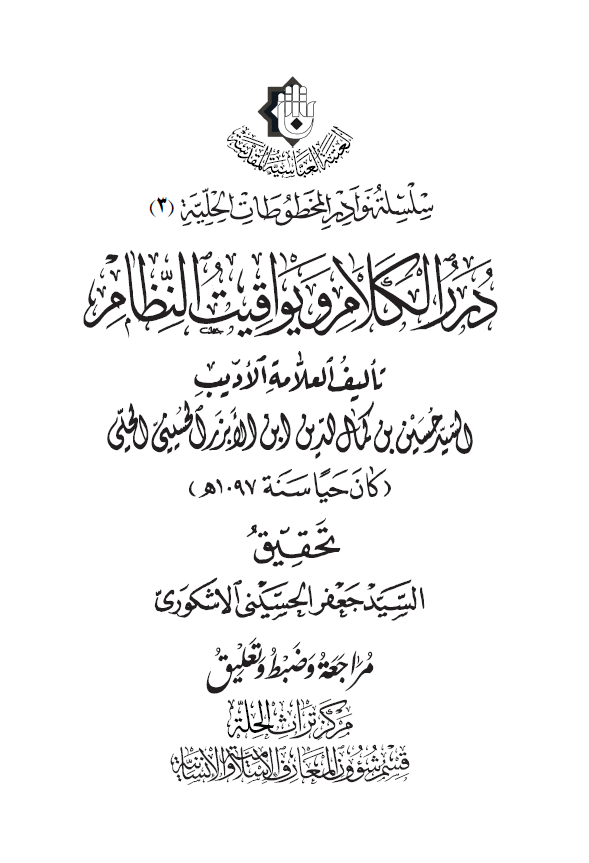 العتبة العباسية المقدسة
سِلْسِلَةُ نَوَادِرِ المَخْطُوطَاتِ الحِلِّيَّةِ (٣)
دُرَرُ الْكَلَامِ وَيَوَاقِيتُ النِّظَامِ
تأليفُ العلّامةِ الأديبِ
السَّيِّد حُسَيْن بن كَمَال الدِّين ابن الأبزَر الحُسَيْنِيّ الحِلِّيّ
(كَانَ حَيًّا سَنَة ١٠٩٧هـ)
تَحَقِيقُ
السَّيِّد جَعْفَر الحُسَيْنِي الاشكوَرِيّ
مُرَاجَعَةُ وَضَبْطُ وَتَعْلِيقُ
مَرْكَز تُرَاث الحِلَّة
قِسْم شُؤُون المَعَارِف الإسْلَامِيَّة وَالإنْسَانِيَّة